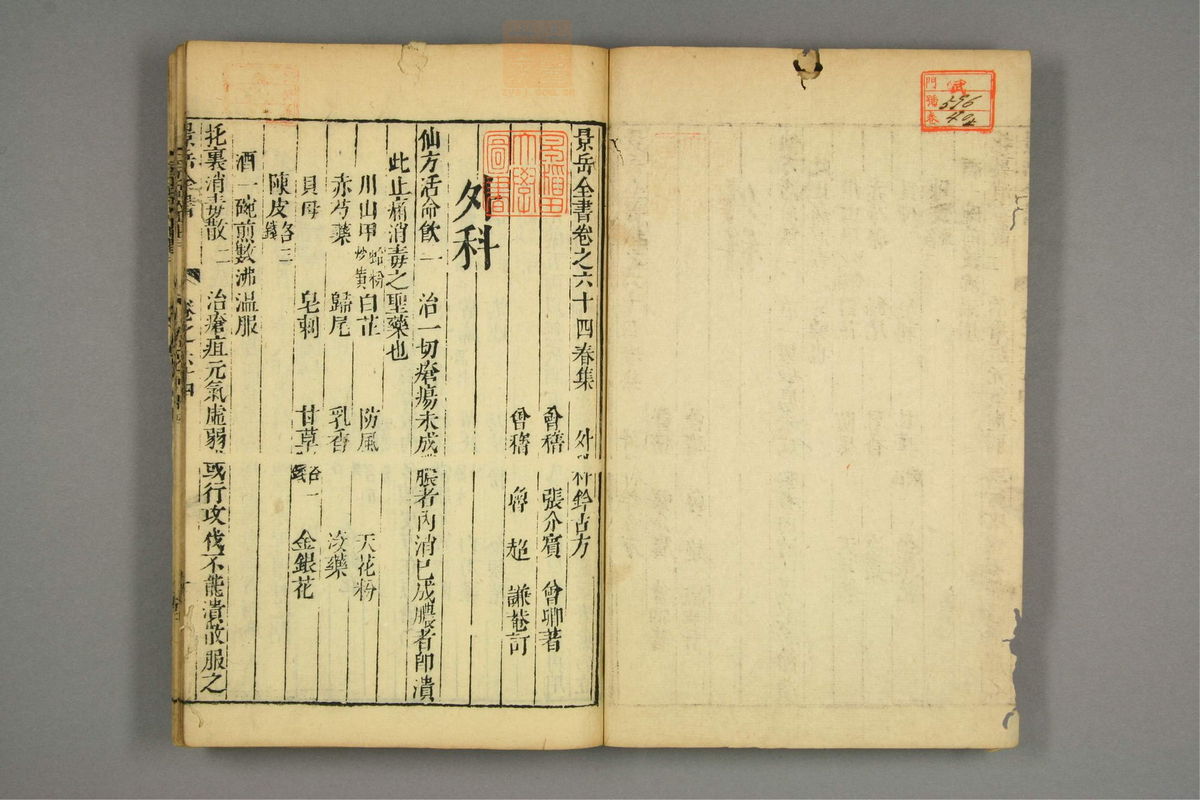 門 貳
號 596
卷 42
景岳全書卷之六十四春集 外科鈐古方
會稽 張介賓 會卿著
會稽 魯超 謙菴訂
早稲田
大學
圖書
外科
仙方活命飲一 治一切瘡瘍未成膿者內消已成膿者即潰
此止痛消毒之聖藥也
川山甲蛤粉炒黃 白芷 防風 天花粉
赤芍藥 歸尾 乳香 沒藥
貝母 皂刺 甘草各一錢 金銀花
陳皮各三錢
酒一碗煎數沸溫服
托裏消毒散二 治瘡疽元氣虛弱或行攻伐不能潰散服之
景岳全書 卷之六十四